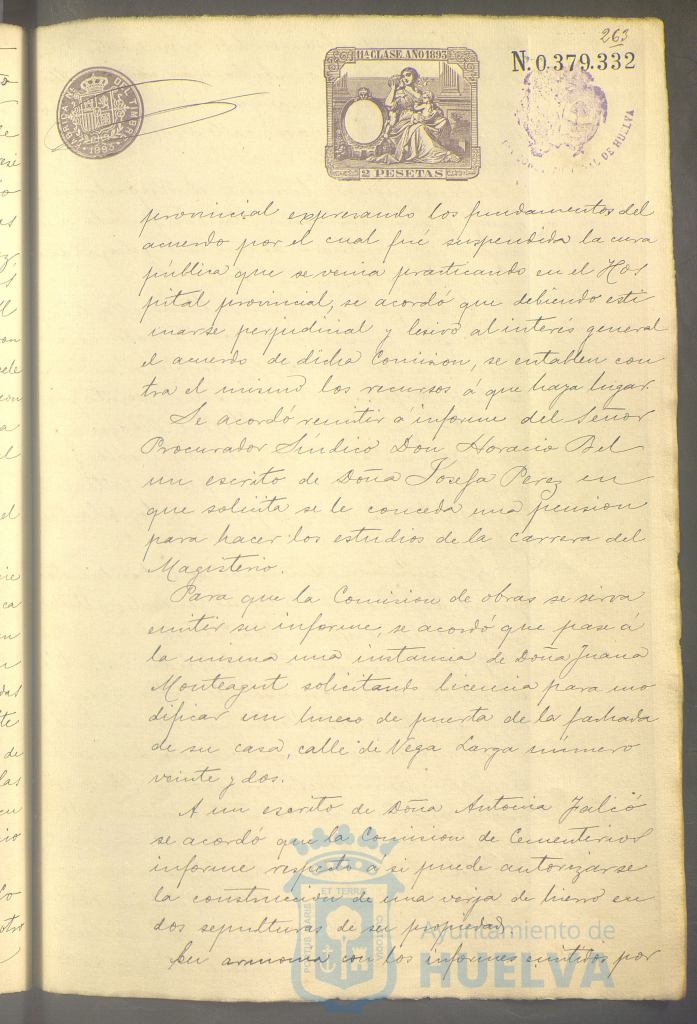 263
11ª CLASE. AÑO 1893
N. 0.379.332
FABRICA NL. DEL TIMBRE
1893
2 PESETAS
DE HUELVA
provincial expresando los fundamentos del
acuerdo por el cual fué suspendida la cura
pública que se venia practicando en el Hos
pital provincial, se acordó que debiendo esti
marse perjudicial y lesivo al interés general
el acuerdo de dicha Comision, se entablen con
tra el mismo los recursos á que haya lugar.
Se acordó remitir á informe del Señor
Procurador Síndico Don Horacio Bel
un escrito de Doña Josefa Perez en
que solicita se le conceda una pension
para hacer los estudios de la carrera del
Magisterio.
Para que la Comision de obras se sirva
emitir su informe, se acordó que pase á
la misma una instancia de Doña Juana
Monteagut solicitando licencia para mo
dificar un hueco de puerta de la fachada
de su casa, calle de Vega Larga número
veinte y dos.
A un escrito de Doña Antonia Falcó
se acordó que la Comision de Cementerios
informe respecto á si puede autorizarse
la construccion de una verja de hierro en
dos sepulturas de su propiedad.
En armonia con los informes emitidos por
PORTUS MARIS ET TERRÆ CUSTODIA
Ayuntamiento de
HUELVA